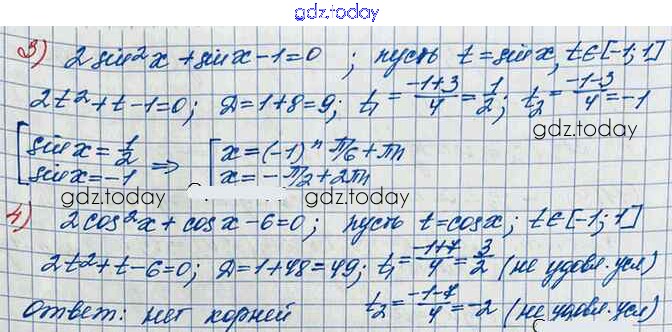 gdz.today
3) 2 sin²x + sin x - 1 = 0 ; пусть t = sin x, t ∈ [-1; 1]
2t² + t - 1 = 0; D = 1 + 8 = 9; t₁ = (-1+3)/4 = 1/2; t₂ = (-1-3)/4 = -1
gdz.today
[ sin x = 1/2 ⇒ [ x = (-1)ⁿ π/6 + πn
sin x = -1 x = -π/2 + 2πn
gdz.today gdz.today
4) 2 cos²x + cos x - 6 = 0; пусть t = cos x; t ∈ [-1; 1]
2t² + t - 6 = 0; D = 1 + 48 = 49; t₁ = (-1+7)/4 = 3/2 (не удовл. усл)
Ответ: нет корней t₂ = (-1-7)/4 = -2 (не удовл. усл)